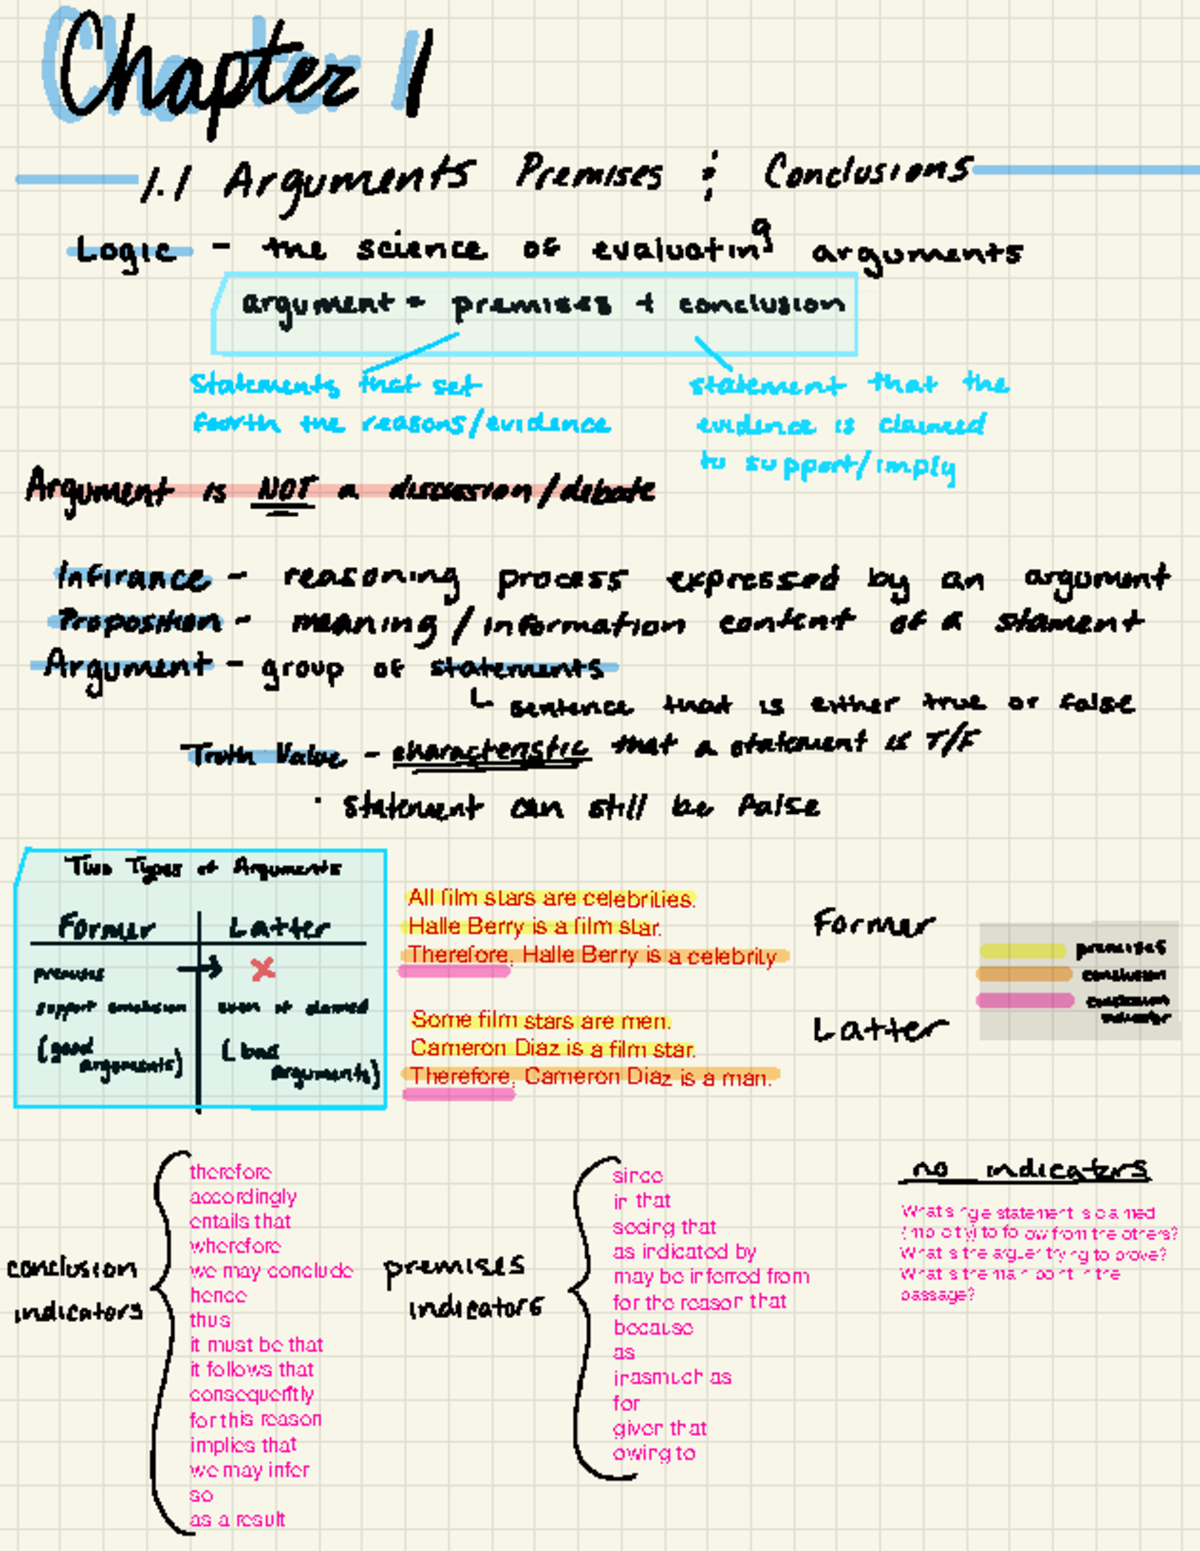 Chapter 1
1.1 Arguments Premises & Conclusions
Logic - the science of evaluating arguments
argument = premises + conclusion
Statements that set
fourth the reasons/evidence
statement that the
evidence is claimed
to support/imply
Argument is NOT a discussion/debate
Infirance - reasoning process expressed by an argument
Proposition - meaning/information content of a stament
Argument - group of statements
sentence that is either true or false
Truth Value - characteristic that a statement is T/F
· statement can still be false
Two Types of Arguments
Former Latter
premises → X
support conclusion even if claimed
(good arguments) (bad arguments)
All film stars are celebrities.
Halle Berry is a film star.
Therefore, Halle Berry is a celebrity
Former
Some film stars are men.
Cameron Diaz is a film star.
Therefore, Cameron Diaz is a man.
Latter
premises
conclusion
conclusion
indicator
conclusion
indicators
therefore
accordingly
entails that
wherefore
we may conclude
hence
thus
it must be that
it follows that
consequently
for this reason
implies that
we may infer
so
as a result
premises
indicators
since
in that
seeing that
as indicated by
may be inferred from
for the reason that
because
as
inasmuch as
for
given that
owing to
no indicators
What single statement is claimed
(implicitly) to follow from the others?
What is the arguer trying to prove?
What is the main point in the
passage?